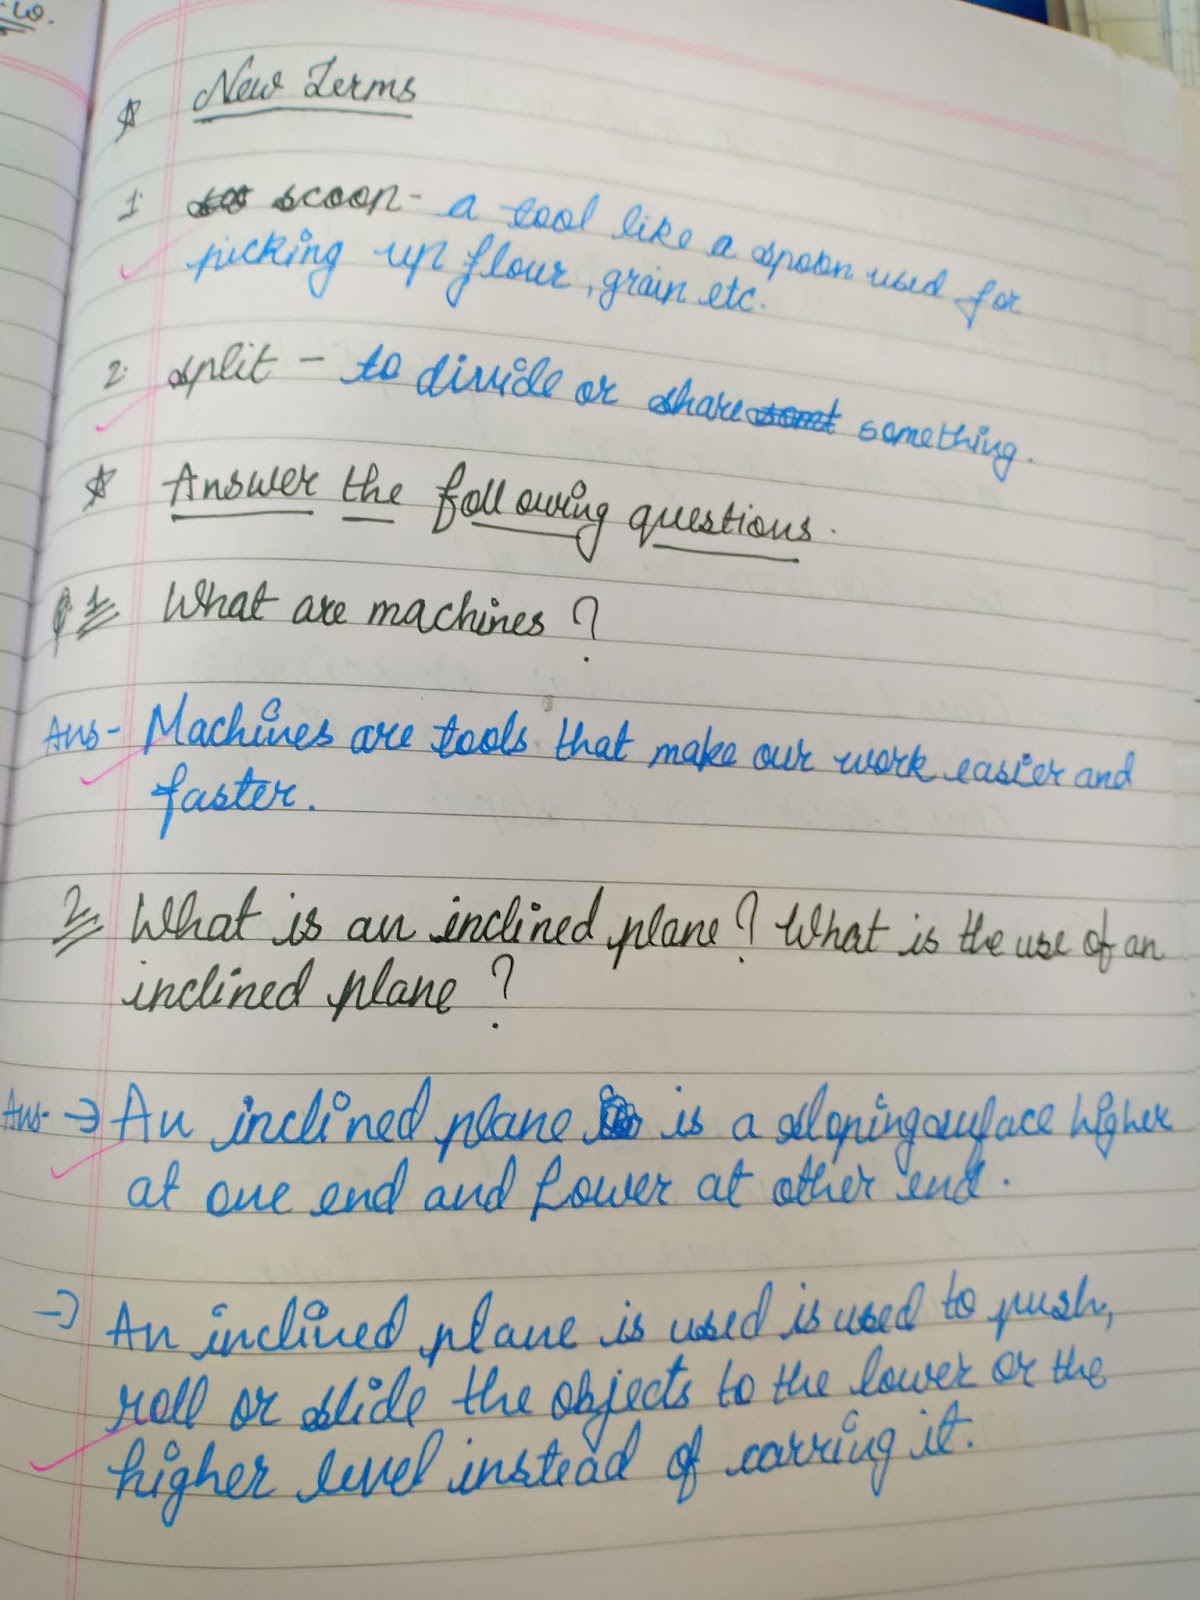 New Terms
1. scoop - a tool like a spoon used for
picking up flour, grain etc.
2. split - to divide or share something.
Answer the following questions.
Q1 What are machines?
Ans- Machines are tools that make our work easier and
faster.
2 What is an inclined plane? What is the use of an
inclined plane?
Ans- → An inclined plane is a sloping surface higher
at one end and lower at other end.
→ An inclined plane is used is used to push,
roll or slide the objects to the lower or the
higher level instead of carring it.